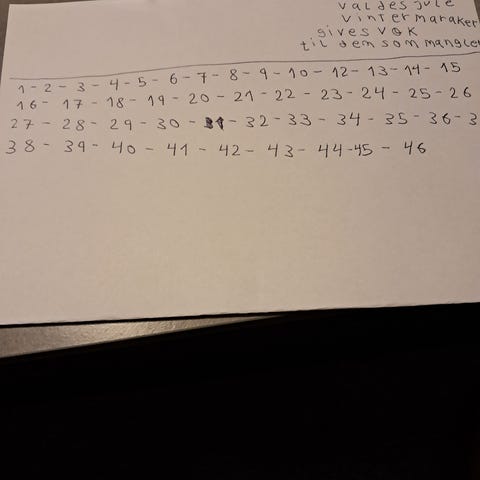 valdes jule
vintermaraker
gives VGK
til dem som mangler
1 - 2 - 3 - 4 - 5 - 6 - 7 - 8 - 9 - 10 - 12 - 13 - 14 - 15
16 - 17 - 18 - 19 - 20 - 21 - 22 - 23 - 24 - 25 - 26
27 - 28 - 29 - 30 - 31 - 32 - 33 - 34 - 35 - 36 - 3
38 - 39 - 40 - 41 - 42 - 43 - 44 - 45 - 46